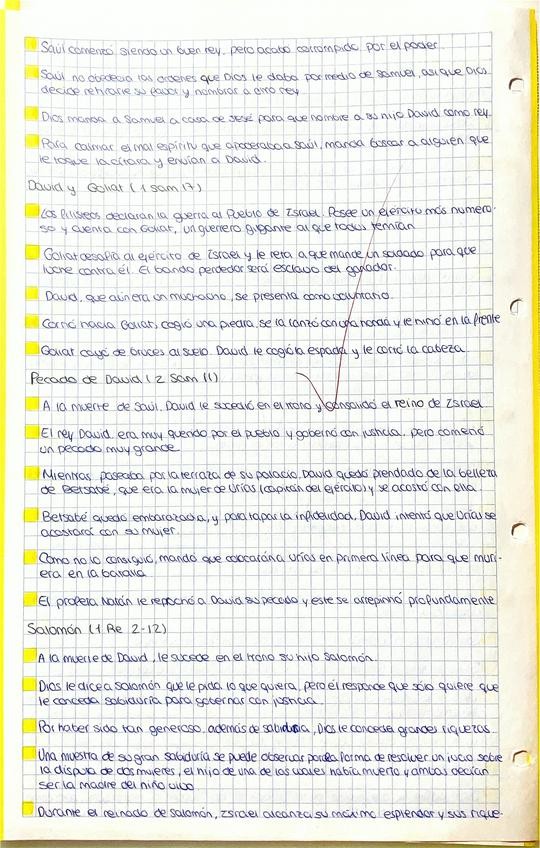 Saúl comenzó siendo un buen rey, pero acabó corrompido por el poder.
Saúl no obedecía las ordenes que Dios le daba por medio de Samuel, así que Dios
decide retirarle su favor y nombrar a otro rey
Dios manda a Samuel a casa de Jesé para que nombre a su hijo David como rey.
Para calmar el mal espíritu que apoderaba a Saúl, manda buscar a alguien que
le toque la cítara y envían a David.
David y Goliat (1 Sam 17)
Los filisteos declaran la guerra al Pueblo de Israel. Posee un ejército más numero-
so y cuenta con Goliat, un guerrero gigante al que todos temían
Goliat desafía al ejército de Israel y le reta a que mande un soldado para que
luche contra él. El bando perdedor será esclavo del ganador.
David, que aún era un muchacho, se presenta como voluntario.
Corrió hacia Goliat, cogió una piedra, se la lanzó con una honda y le hirió en la frente
Goliat cayó de bruces al suelo. David le cogió la espada y le cortó la cabeza
Pecado de David (2 Sam 11)
A la muerte de Saúl, David le sucedió en el trono y consolidó el reino de Israel
El rey David era muy querido por el pueblo y gobernó con justicia, pero cometió
un pecado muy grande
Mientras paseaba por la terraza de su palacio, David quedó prendado de la belleza
de Betsabé, que era la mujer de Urías (capitán del ejército) y se acostó con ella.
Betsabé quedó embarazada, y para tapar la infidelidad, David intentó que Urías se
acostara con su mujer.
Como no lo consiguió, mandó que colocaran a Urías en primera línea para que muri-
era en la batalla
El profeta Natán le reprochó a David su pecado y este se arrepintió profundamente
Salomón (1 Re 2-12)
A la muerte de David, le sucede en el trono su hijo Salomón.
Dios le dice a Salomón que le pida lo que quiera, pero él responde que sólo quiere que
le conceda sabiduría para gobernar con justicia.
Por haber sido tan generoso, además de sabiduría, Dios le concede grandes riquezas.
Una muestra de su gran sabiduría se puede observar por la forma de resolver un juicio sobre
la disputa de dos mujeres, el hijo de una de las cuales había muerto y ambas decían
ser la madre del niño vivo
Durante el reinado de Salomón, Israel alcanza su máximo esplendor y sus rique-